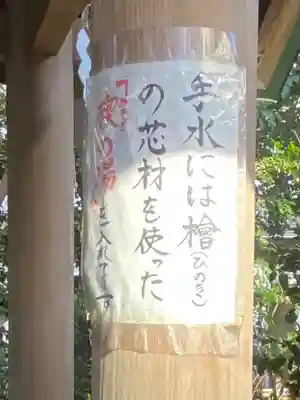 手水には檜(ひのき)
の芯材を使った
の湯」を入れています